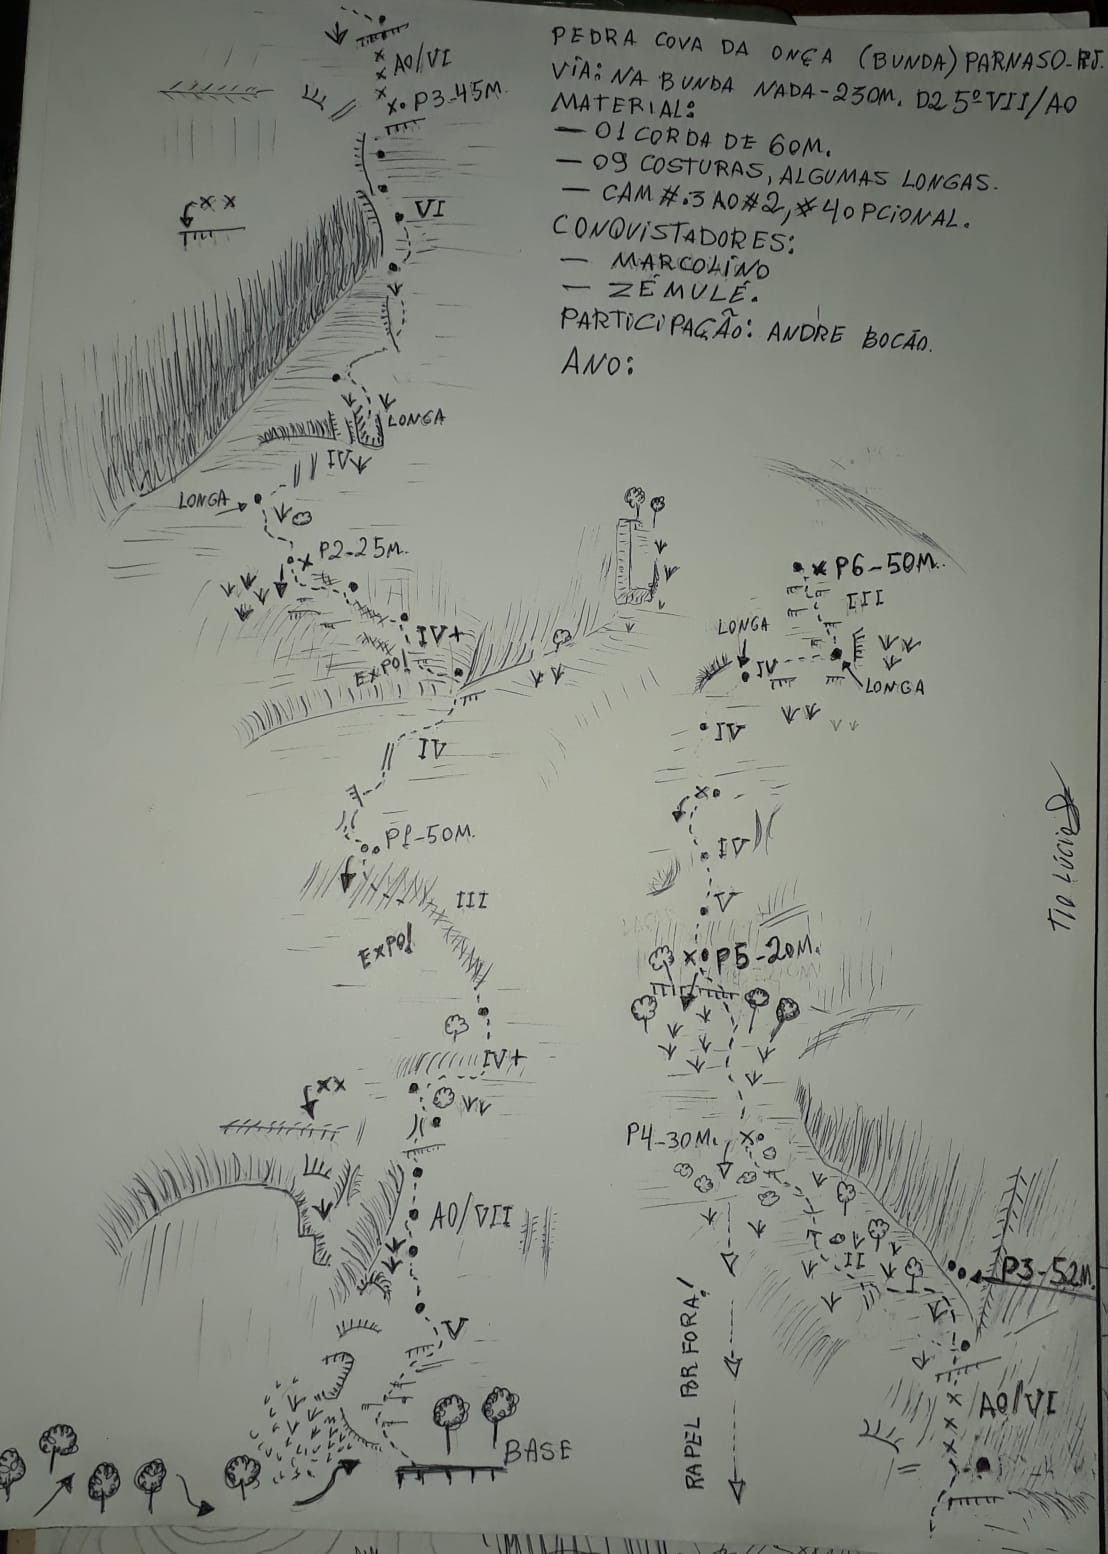 PEDRA COVA DA ONÇA (BUNDA) PARNASO-RJ.
VIA: NA BUNDA NADA-230M. D2 5º VII/A0
MATERIAL:
— 01 CORDA DE 60M.
— 09 COSTURAS, ALGUMAS LONGAS.
— CAM #.3 AO #2, #4 OPCIONAL.
CONQUISTADORES:
— MARCOLINO
— ZÉ MULÉ.
PARTICIPAÇÃO: ANDRE BOCÃO.
ANO:
A0/VI
P3-45M.
VI
LONGA
IV
LONGA
P2-25M.
IV+
EXPO!
IV
P1-50M.
III
EXPO!
IV+
A0/VII
V
BASE
P6-50M.
III
LONGA
IV
LONGA
IV
IV
V
P5-20M.
P4-30M.
II
P3-52M.
A0/VI
RAPEL POR FORA!
TIO LÚCIO